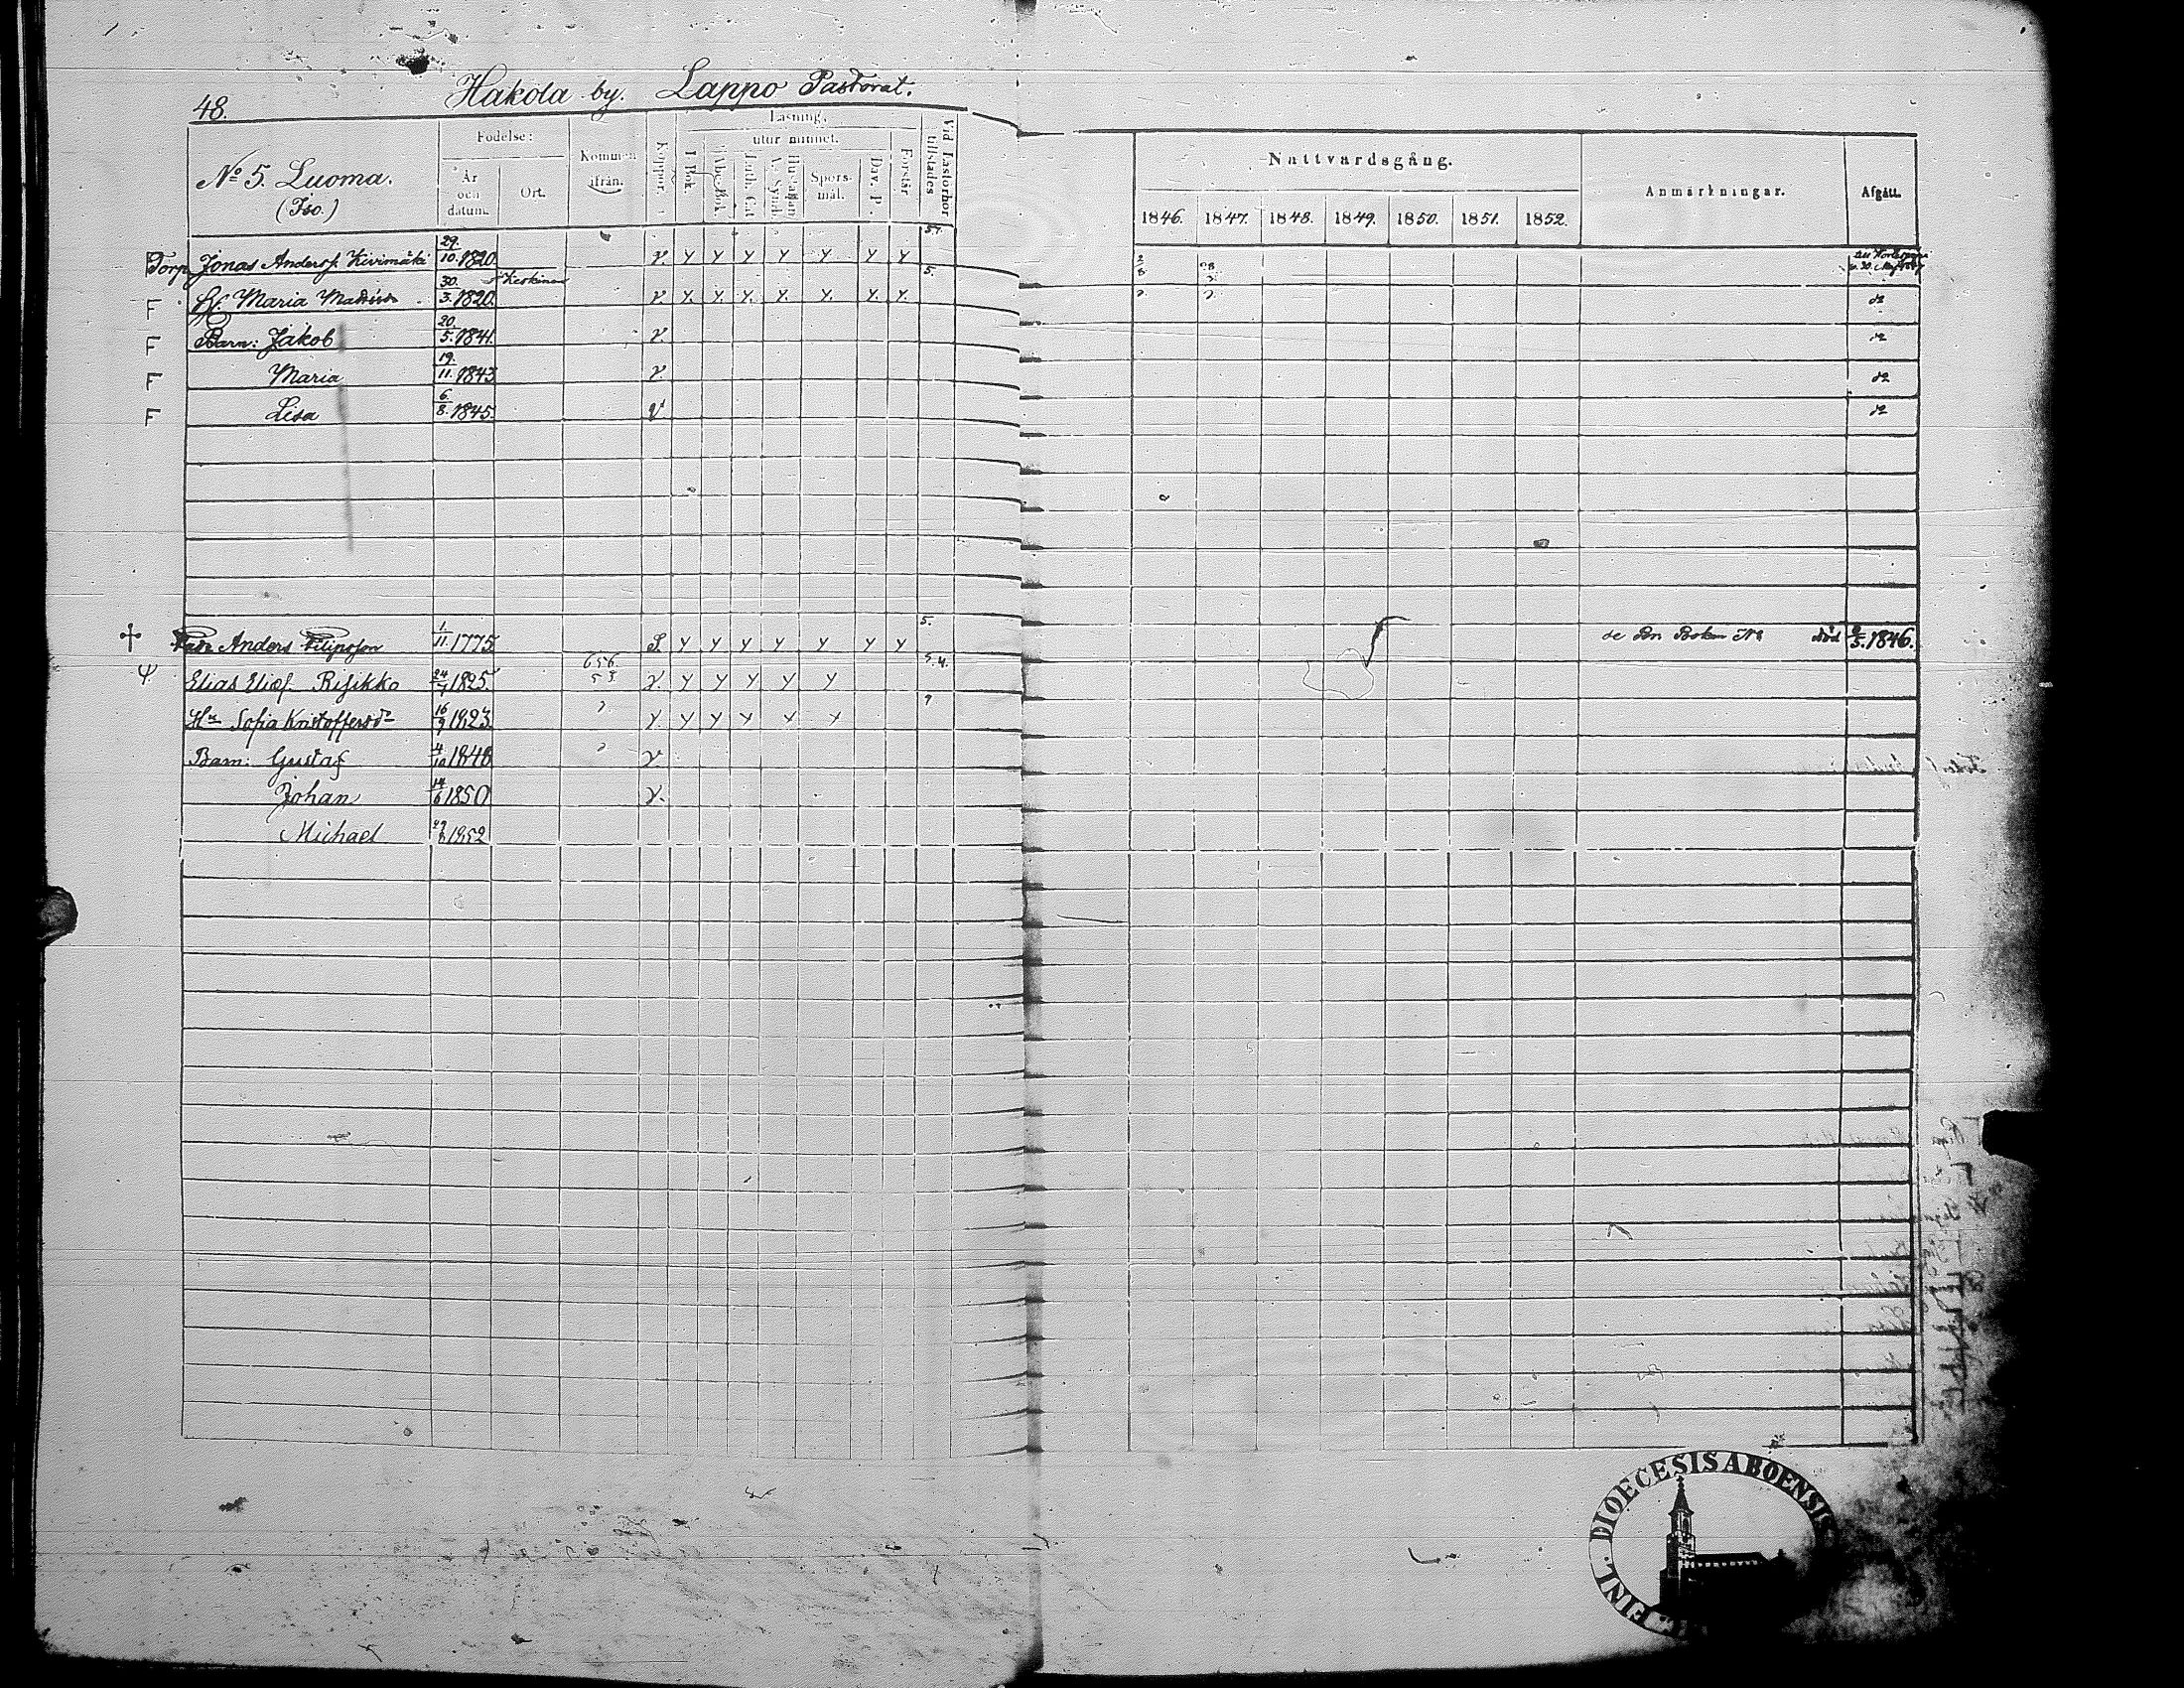 48. Hakola by. Lappo Pastorat.
No 5. Luoma.
(Iso.)
Födelse:
År och datum.
Ort.
Kommen ifrån.
Koppor.
Läsning.
I Bok.
utur minnet.
Abc Bok.
Luth. Cat.
Hustaflan
A. Symb.
Spörs-mål.
Dav. P.
Förstår
Vid Läsförhör tillstädes
Nattvardsgång.
1846. 1847. 1848. 1849. 1850. 1851. 1852.
Anmärkningar.
Afgått.
Torp. Jonas Anderss. Kivimäki 29/10. 1820. v. y y y y y y y 57. 2/8
F H. Maria Mattsdr 30/3. 1820. Keskinen v. y. y. y. y. y. y. y. 5. d:o
F Barn: Jakob 20/5. 1841. v. d:o
F Maria 19/11. 1843 v. d:o
F Lisa 6/8. 1845. v d:o
† Anders Filipsson 1/11. 1775 S. y y y y y y y 5. död 1846.
Elias Eliæs. Risikko 24/7 1825. 656. 53 v. y y y y y 5.4.
Hu Sofia Kristoffersdr 16/9 1823. y. y y y y y
Barn: Gustaf 4/10 1848 v
Johan 14/6 1850 v.
Michael 1852
FINL. DIOECESIS ABOENSIS